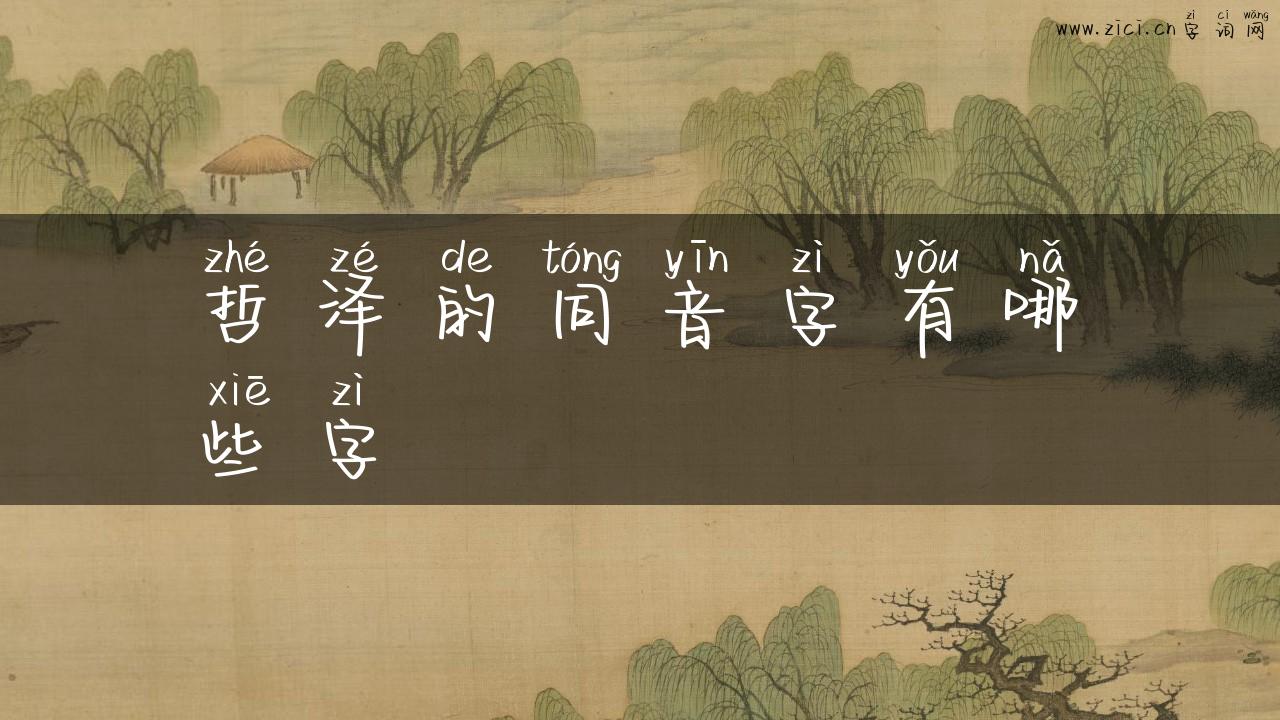 zì cí wǎng
www.zici.cn 字 词 网
zhé zé de tóng yīn zì yǒu nǎ
哲 泽 的 同 音 字 有 哪
xiē zì
些 字